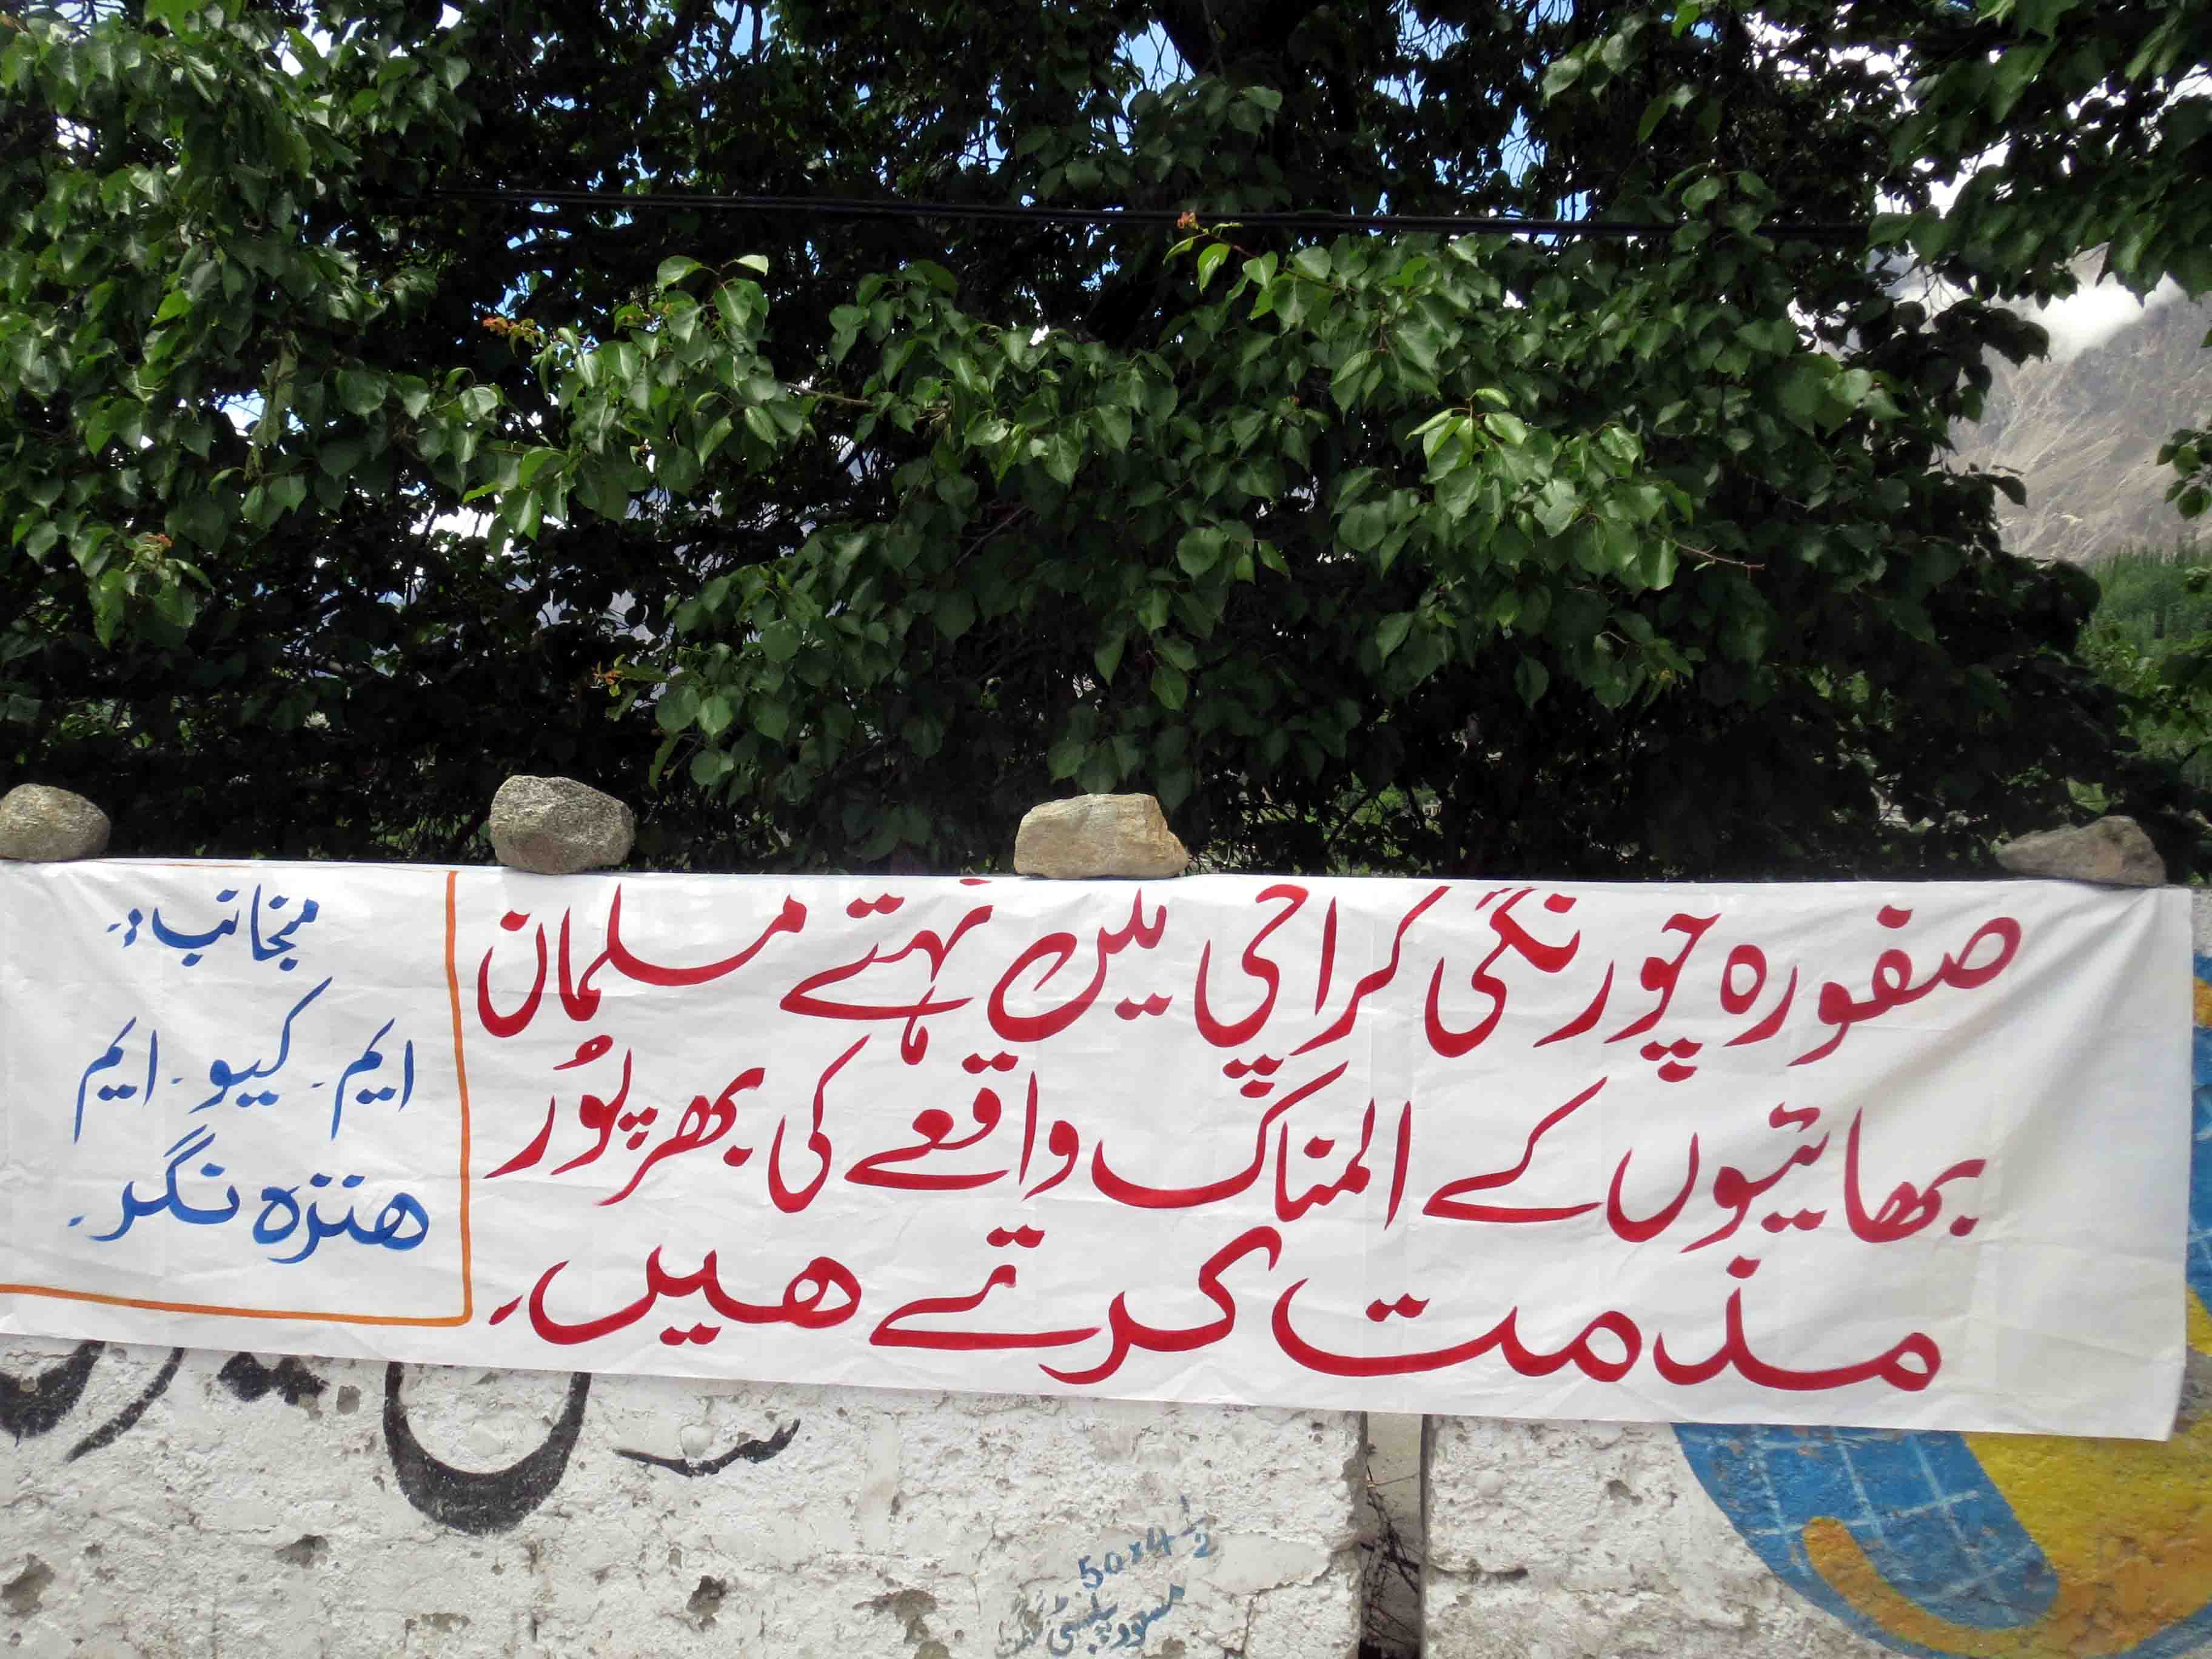 صفورہ چورنگی کراچی میں نہتے مسلمان
بھائیوں کے المناک واقعے کی بھرپُور
مذمت کرتے ھیں۔
منجانب:۔
ایم۔کیو۔ایم
ھنزہ نگر۔
50x4 1/2